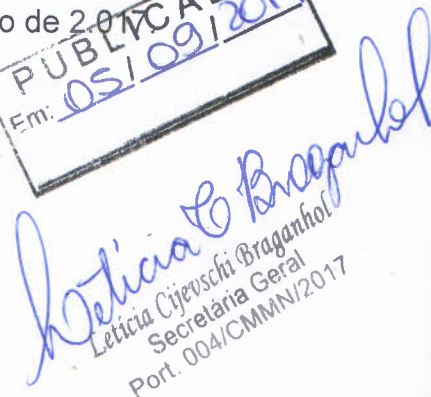 o de 2.017
PUBLICA
Em: 05/09/201
Letícia C Braganhol
Letícia Cijevschi Braganhol
Secretária Geral
Port. 004/CMMN/2017